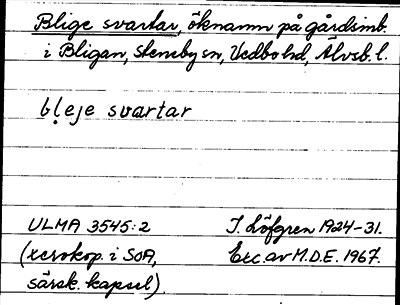 Blige svartar, öknamn på gårdsinb.
i Bligan, Steneby sn, Vedbo hd, Älvsb. l.
bl̥eje svartar
ULMA 3545:2 J. Löfgren 1924-31.
(xerokop. i SOA, Exc. av M.D.E. 1967.
särsk. kapsel)